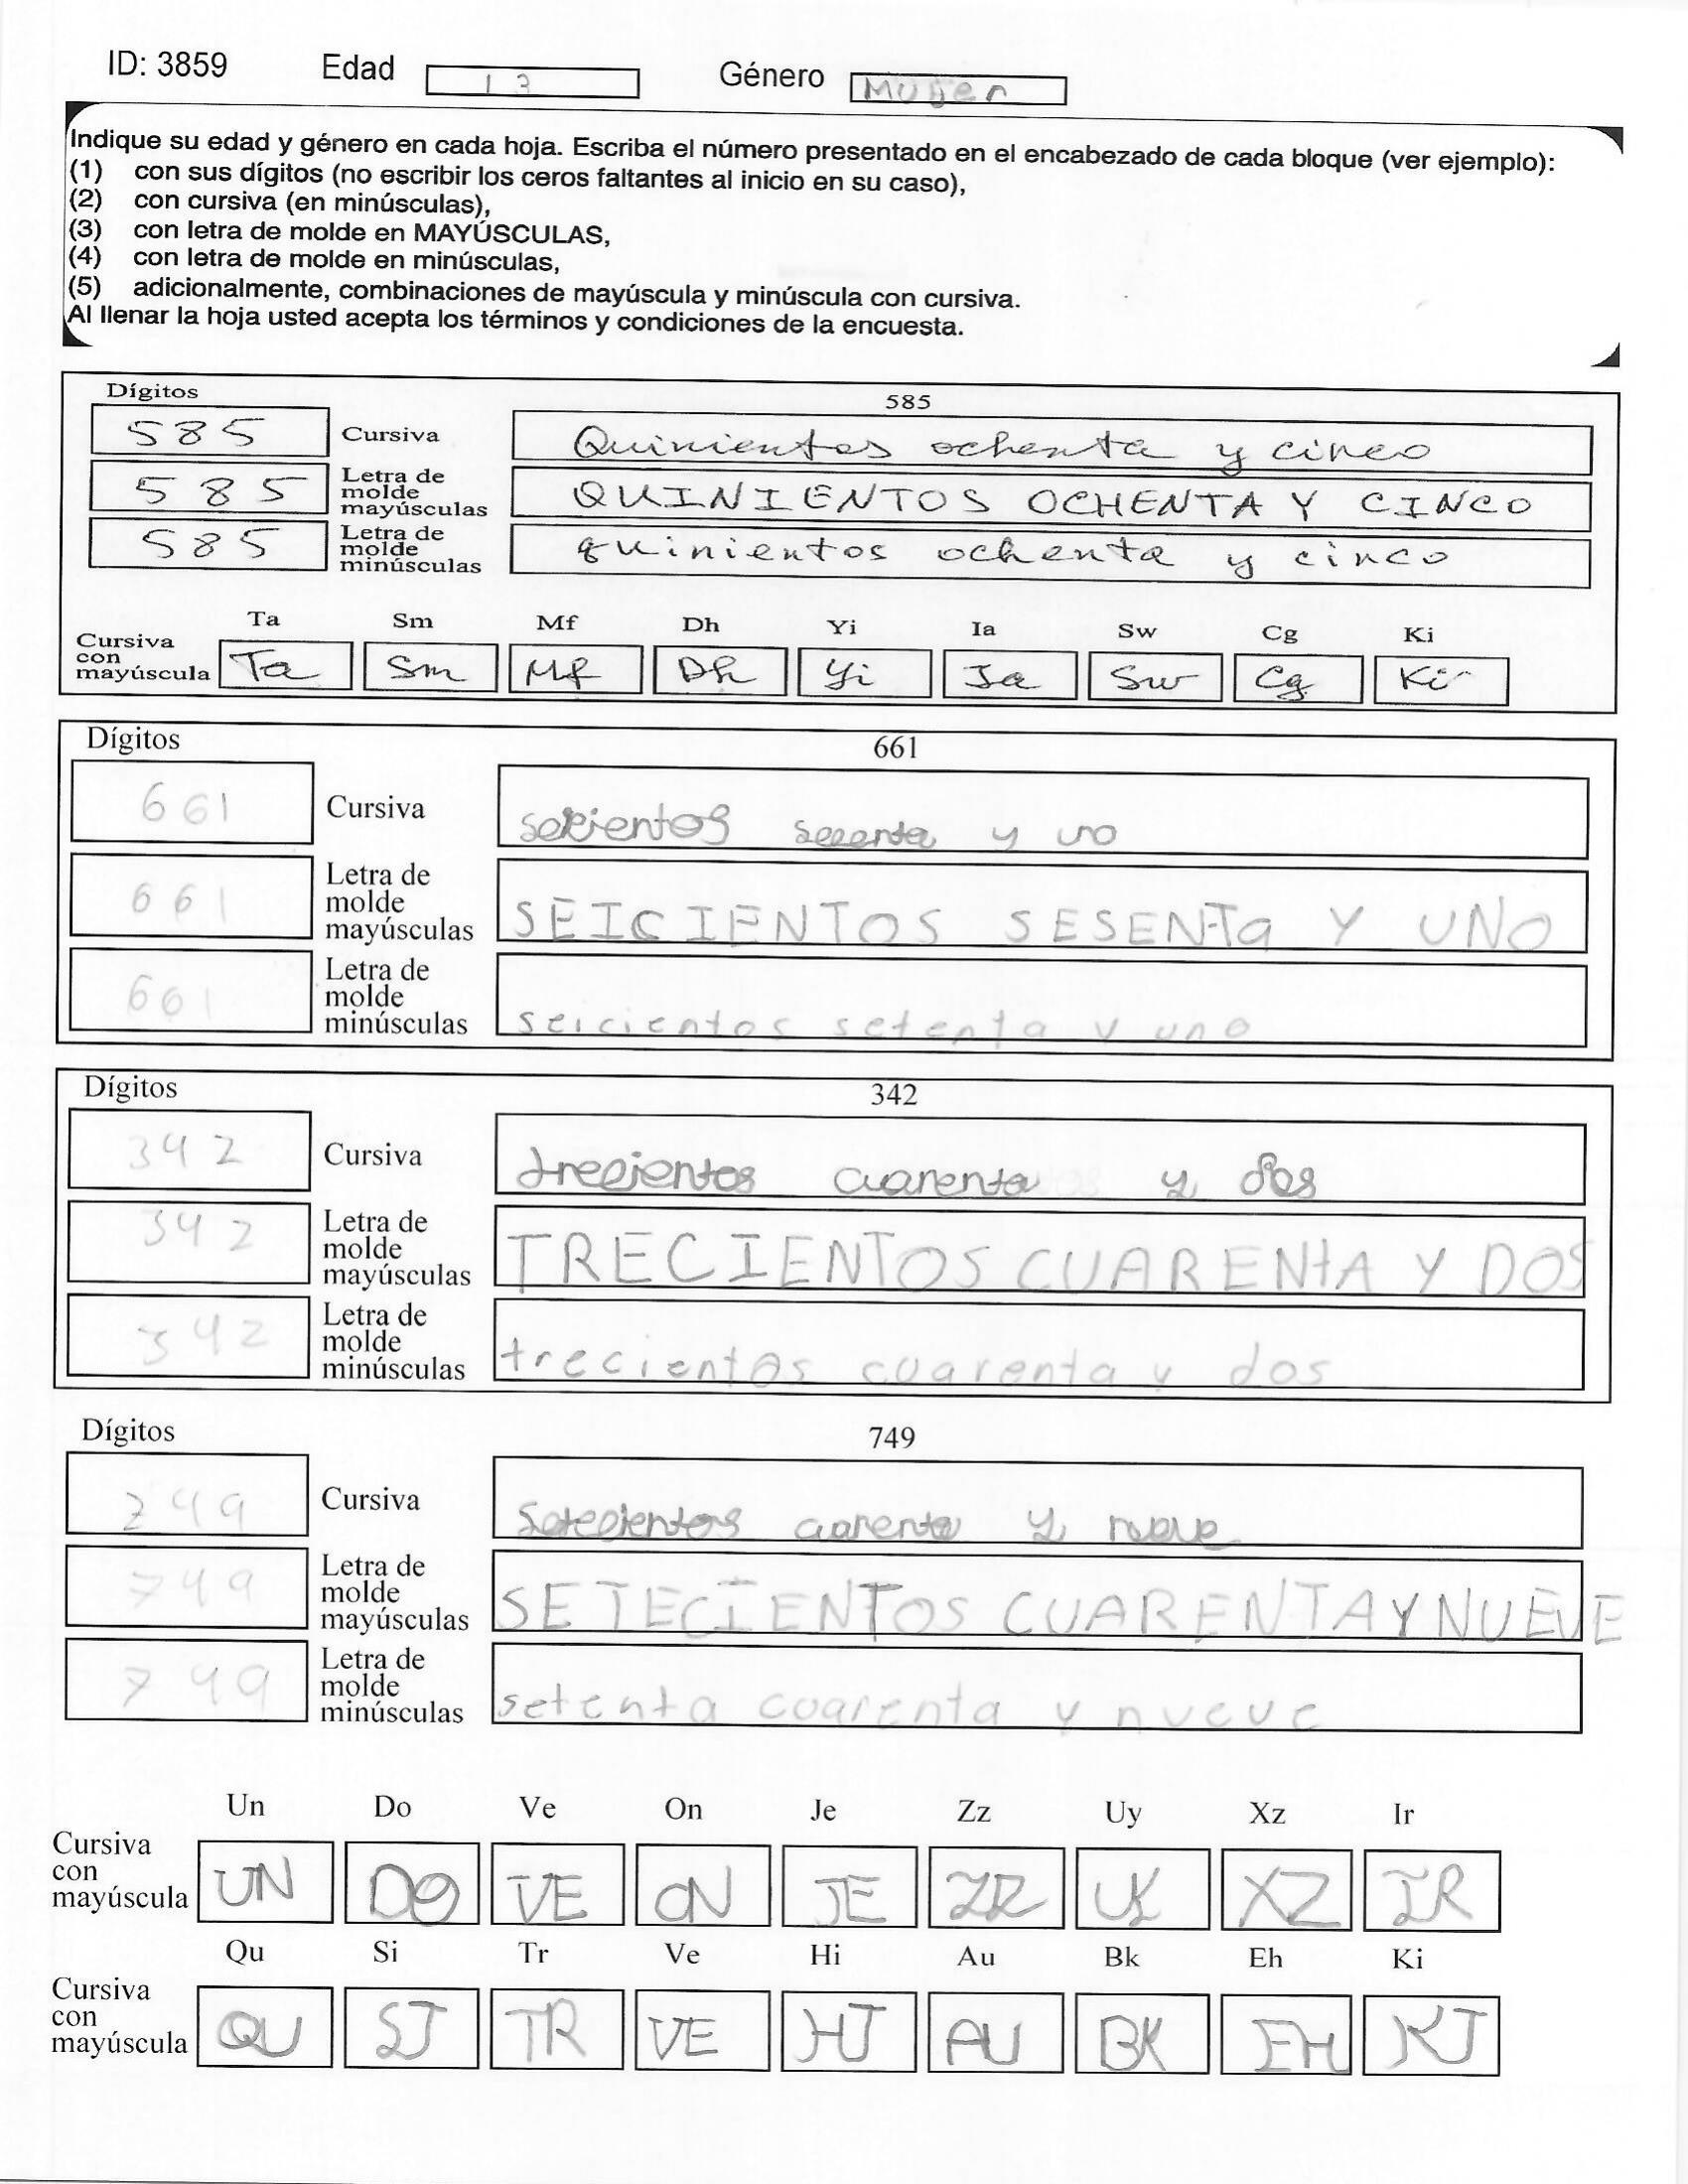 ID: 3859 Edad 13 Género Mujer
Indique su edad y género en cada hoja. Escriba el número presentado en el encabezado de cada bloque (ver ejemplo):
(1) con sus dígitos (no escribir los ceros faltantes al inicio en su caso),
(2) con cursiva (en minúsculas),
(3) con letra de molde en MAYÚSCULAS,
(4) con letra de molde en minúsculas,
(5) adicionalmente, combinaciones de mayúscula y minúscula con cursiva.
Al llenar la hoja usted acepta los términos y condiciones de la encuesta.
Dígitos 585
585 Cursiva Quinientos ochenta y cinco
585 Letra de molde mayúsculas QUINIENTOS OCHENTA Y CINCO
585 Letra de molde minúsculas quinientos ochenta y cinco
Ta Sm Mf Dh Yi Ia Sw Cg Ki
Cursiva con mayúscula Ta Sm Mf Dh Yi Ia Sw Cg Ki
Dígitos 661
661 Cursiva y uno
661 Letra de molde mayúsculas SEICIENTOS SESENTa Y UNO
661 Letra de molde minúsculas seicientos setenta y uno
Dígitos 342
342 Cursiva trecientos cuarenta y dos
342 Letra de molde mayúsculas TRECIENTOS CUARENtA Y DOS
342 Letra de molde minúsculas trecientos cuarenta y dos
Dígitos 749
749 Cursiva Setecientos cuarenta y nueve
749 Letra de molde mayúsculas SETECIENTOS CUARENTA Y NUEVE
749 Letra de molde minúsculas setenta cuarenta y nueve
Un Do Ve On Je Zz Uy Xz Ir
Cursiva con mayúscula UN DO VE ON JE ZZ UY XZ IR
Qu Si Tr Ve Hi Au Bk Eh Ki
Cursiva con mayúscula QU SI TR VE HI AU BK EH KI